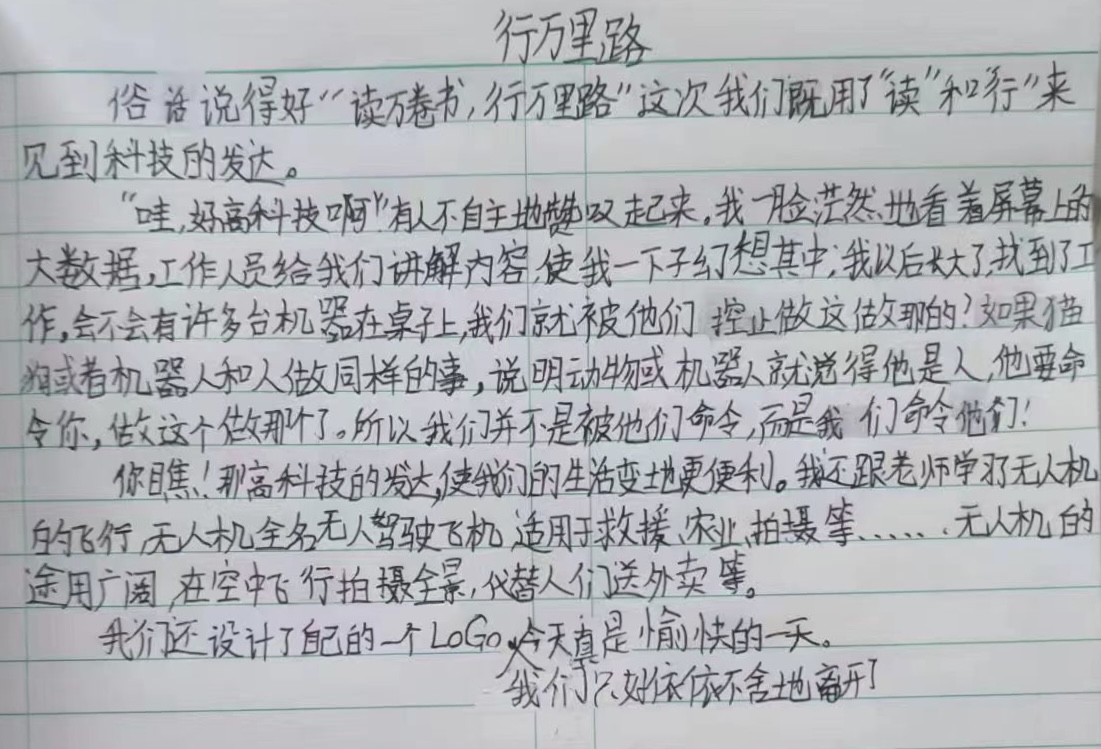 行万里路
俗话说得好“读万卷书,行万里路”这次我们既用了“读”和“行”来
见到科技的发达。
“哇,好高科技啊”有人不自主地赞叹起来,我一脸茫然地看着屏幕上的
大数据,工作人员给我们讲解内容,使我一下子幻想其中;我以后长大了,找到了工
作,会不会有许多台机器在桌子上,我们就被他们控止做这做那的?如果猫
狗或者机器人和人做同样的事,说明动物或机器人就觉得他是人,他要命
令你,做这个做那个了。所以我们并不是被他们命令,而是我们命令他们!
你瞧!那高科技的发达,使我们的生活变地更便利。我还跟老师学习了无人机
的飞行,无人机全名无人驾驶飞机,适用于救援、农业、拍摄等......无人机的
途用广阔,在空中飞行拍摄全景,代替人们送外卖等。
我们还设计了自己的一个LoGo,今天真是愉快的一天。
我们只好依依不舍地离开了